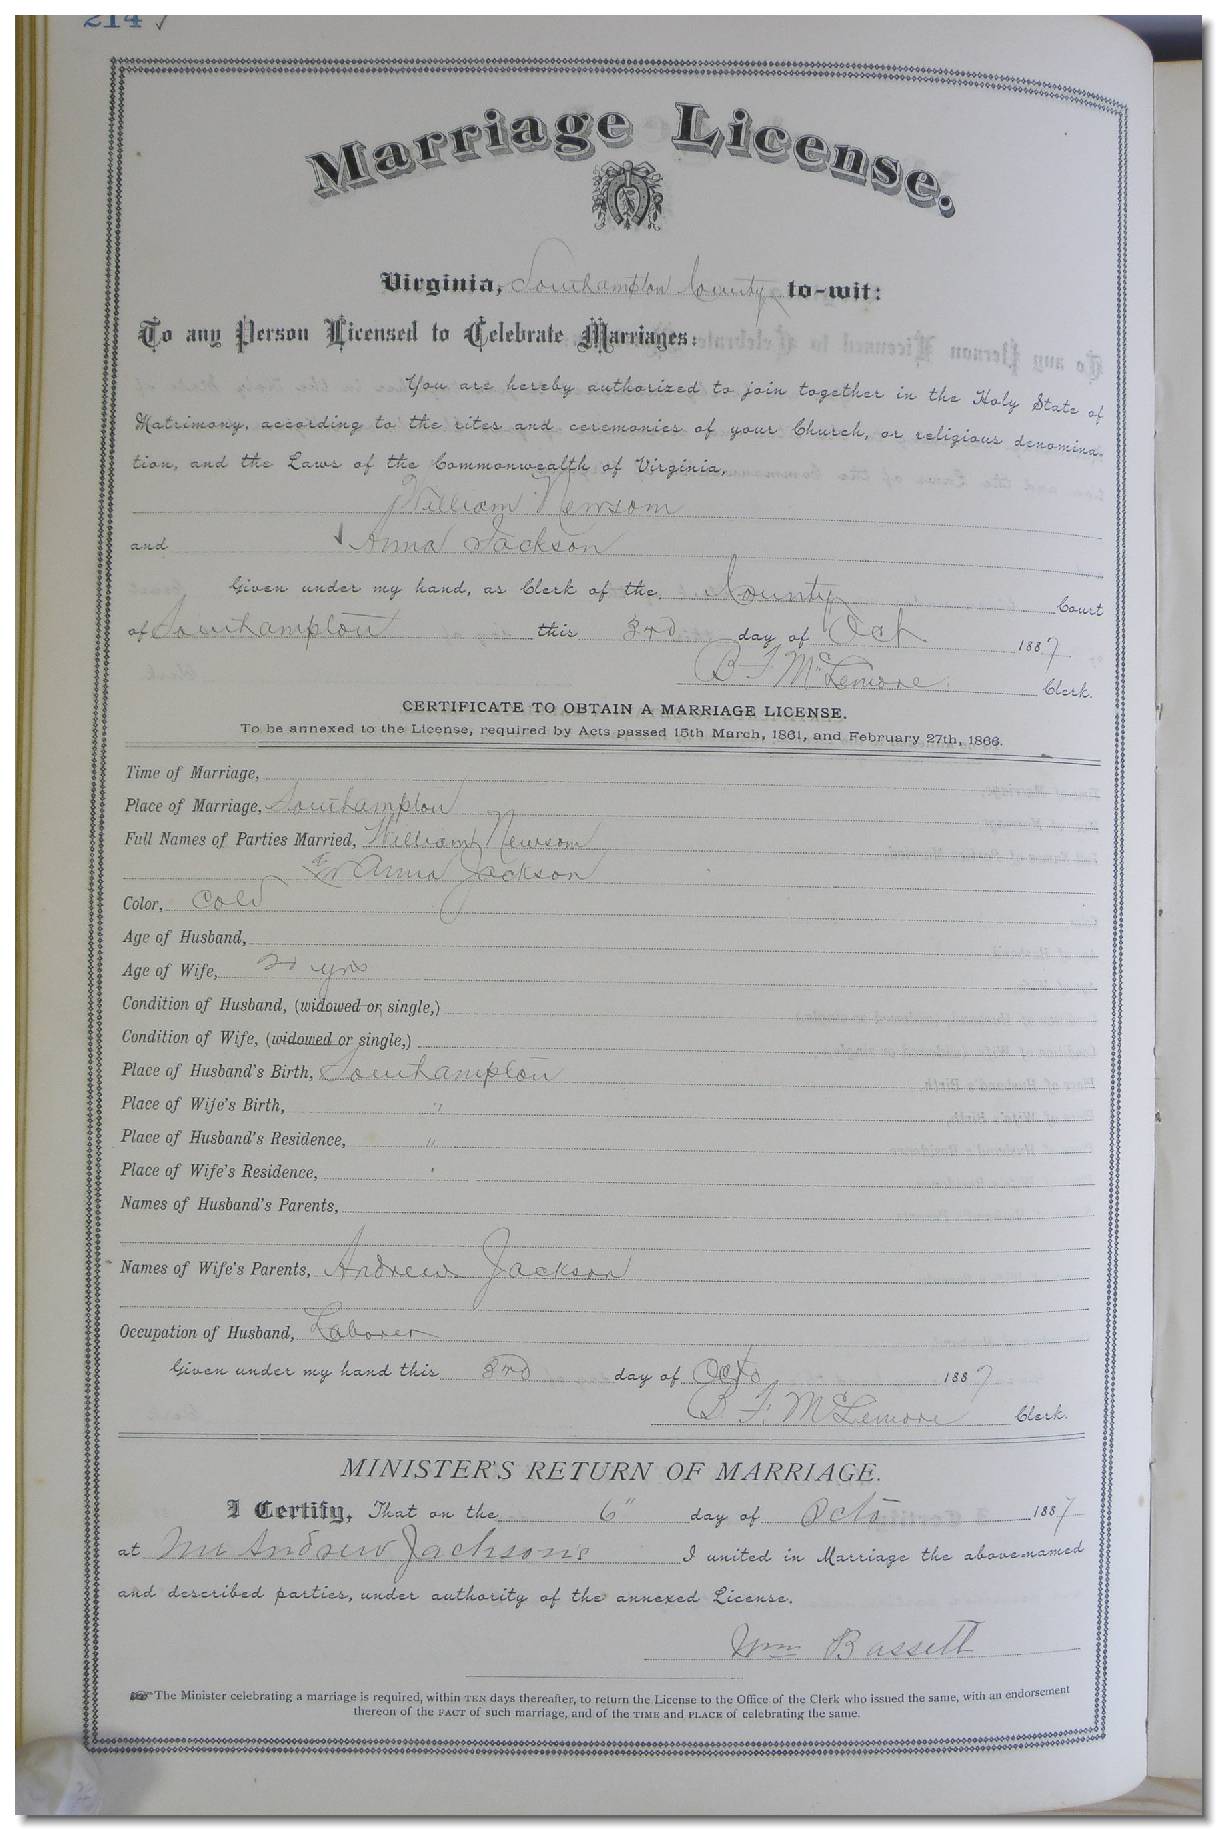 214
Marriage License.
Virginia, Southampton County to-wit:
To any Person Licensed to Celebrate Marriages:
You are hereby authorized to join together in the Holy State of
Matrimony, according to the rites and ceremonies of your Church, or religious denomina-
tion, and the Laws of the Commonwealth of Virginia,
William Newsom
and Anna Jackson
Given under my hand, as Clerk of the County Court
of Southampton this 3rd day of Oct 1887
B F McLemore Clerk.
CERTIFICATE TO OBTAIN A MARRIAGE LICENSE.
To be annexed to the License, required by Acts passed 15th March, 1861, and February 27th, 1866.
Time of Marriage,
Place of Marriage, Southampton
Full Names of Parties Married, William Newsom
& Anna Jackson
Color, Cold
Age of Husband,
Age of Wife, yrs
Condition of Husband, (widowed or single,)
Condition of Wife, (widowed or single,)
Place of Husband's Birth, Southampton
Place of Wife's Birth, "
Place of Husband's Residence, "
Place of Wife's Residence, '
Names of Husband's Parents,
Names of Wife's Parents, Andrew Jackson
Occupation of Husband, Laborer
Given under my hand this 3rd day of Octo 1887
B. F. McLemore Clerk.
MINISTER'S RETURN OF MARRIAGE.
I Certify, That on the 6" day of Octo 1887
at Mr Andrew Jackson's I united in Marriage the above-named
and described parties, under authority of the annexed License.
Wm Bassett
☞ The Minister celebrating a marriage is required, within TEN days thereafter, to return the License to the Office of the Clerk who issued the same, with an endorsement
thereon of the FACT of such marriage, and of the TIME and PLACE of celebrating the same.